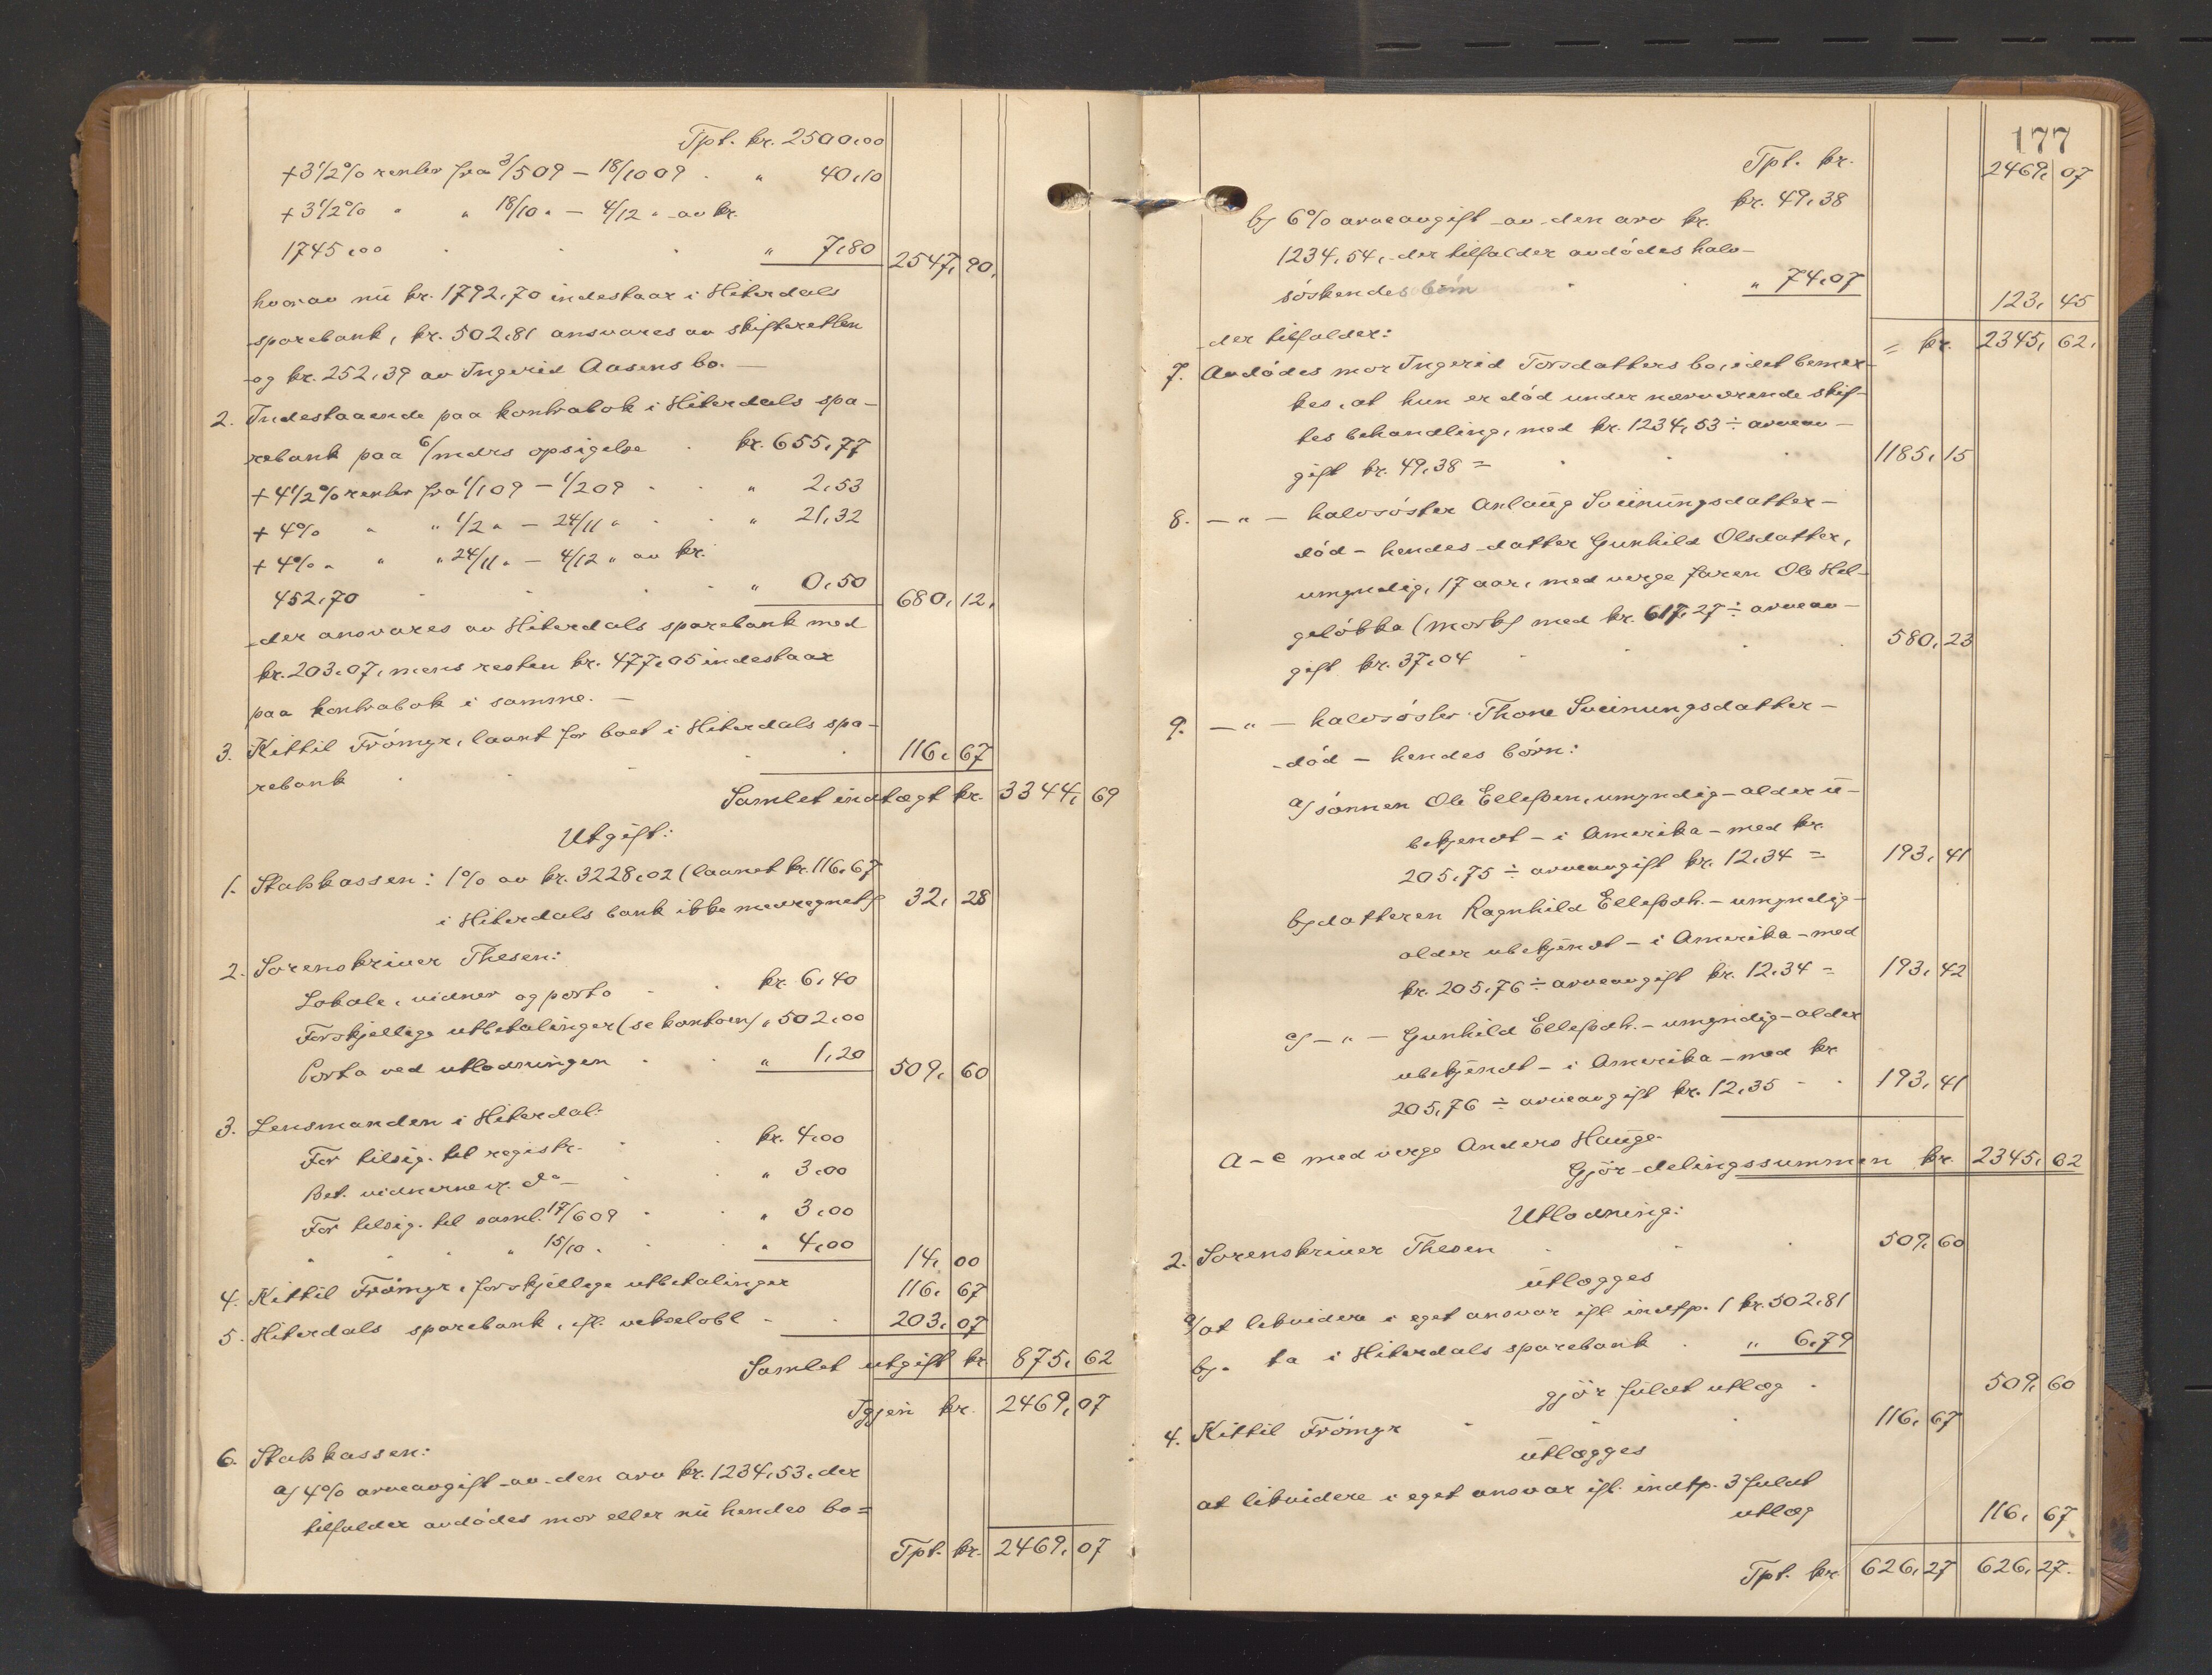 Tpt. kr. 2500,00
+ 3 1/2 % renter fra 3/5 09 – 18/10 09 . „ 40,10
+ 3 1/2 % „ „ 18/10 „ – 4/12 „ av kr.
1745,00 . . . „ 7,80 2547,90,
hvorav nu kr. 1792,70 indestaar i Hiterdals
sparebank, kr. 502,81 ansvares av skifteretten
og kr. 252,39 av Ingerid Aasens bo. —
2. Indestaaende paa kontrabok i Hiterdals spa-
rebank paa 6/mdrs opsigelse . kr. 655,77
+ 4 1/2 % renter fra 1/1 09 – 1/2 09 . . „ 2,53
+ 4 % „ „ 1/2 „ – 24/11 „ . . „ 21,32
+ 4 % „ „ „ 24/11 „ – 4/12 „ av kr.
452,70 . . . . „ 0,50 680,12,
der ansvares av Hiterdals sparebank med
kr. 203,07, mens resten kr. 477,05 indestaar
paa kontrabok i samme. —
3. Kittil Frömyr, laant for boet i Hiterdals spa-
rebank . . . . 116,67
Samlet indtægt kr. 3344,69
Utgift:
1. Statskassen: 1 % av kr. 3228,02 (laanet kr. 116,67
i Hiterdals bank ikke medregnet) 32,28
2. Sorenskriver Thesen:
Lokale, vidner og porto . . kr. 6,40
Forskjellige utbetalinger (se kontoen) „ 502,00
Porto ved utlodningen . . „ 1,20 509,60
3. Lensmanden i Hiterdal:
For tilsig. til registr. . . kr. 4,00
Bet. vidnerne v. do – . „ 3,00
For tilsig. til saml. 17/6 09 . . „ 3,00
„ „ „ „ 15/10 „ . . „ 4,00 14,00
4. Kittil Frömyr, forskjellige utbetalinger 116,67
5. Hiterdals sparebank, ifl. vekselobl. – . 203,07
Samlet utgift kr. 875,62
Igjen kr. 2469,07
6. Statskassen:
a) 4 % arveavgift av den arv kr. 1234,53, der
tilfalder avdödes mor eller nu hendes bo =
Tpt. kr. 2469,07
177
Tpt. kr. 2469,07
kr. 49,38
b) 6 % arveavgift av den arv kr.
1234,54, der tilfalder avdödes halv-
söskendes börn . . „ 74,07 123,45
der tilfalder: = kr. 2345,62,
7. Avdödes mor Ingerid Torsdatters bo, idet bemer-
kes, at hun er död under nærværende skif-
tes behandling, med kr. 1234,53 ÷ arveav-
gift kr. 49,38 = . . . 1185,15
8. — „ — halvsöster Anlaug Sveinungsdatter –
död – hendes datter Gunhild Olsdatter,
umyndig, 17 aar, med verge faren Ole Hel-
gelökka (mork) med kr. 617,27 ÷ arveav-
gift kr. 37,04 . . . 580,23
9. — „ — halvsöster Thone Sveinungsdatter –
död – hendes börn:
a) sönnen Ole Ellefsen, umyndig – alder u-
bekjendt – i Amerika – med kr.
205,75 ÷ arveavgift kr. 12,34 = 193,41
b) datteren Ragnhild Ellefsdt. – umyndig –
alder ubekjendt – i Amerika – med
kr. 205,76 ÷ arveavgift kr. 12,34 = 193,42
c) – „ – Gunhild Ellefsdt. – umyndig – alder
ubekjendt – i Amerika – med kr
205,76 ÷ arveavgift kr. 12,35 – . 193,41
a – c med verge Anders Hauge.
Gjör delingssummen kr. 2345,62
Utlodning:
2. Sorenskriver Thesen . . . 509,60
utlægges
a) at likvidere i eget ansvar ifl. indtp. 1 kr. 502,81
b) „ ta i Hiterdals sparebank . „ 6,79
gjör fuldt utlæg . 509,60
4. Kittil Frömyr . . . 116,67
utlægges
at likvidere i eget ansvar ifl. indtp. 3 fuldt
utlæg 116,67
Tpt. kr. 626,27 626,27.